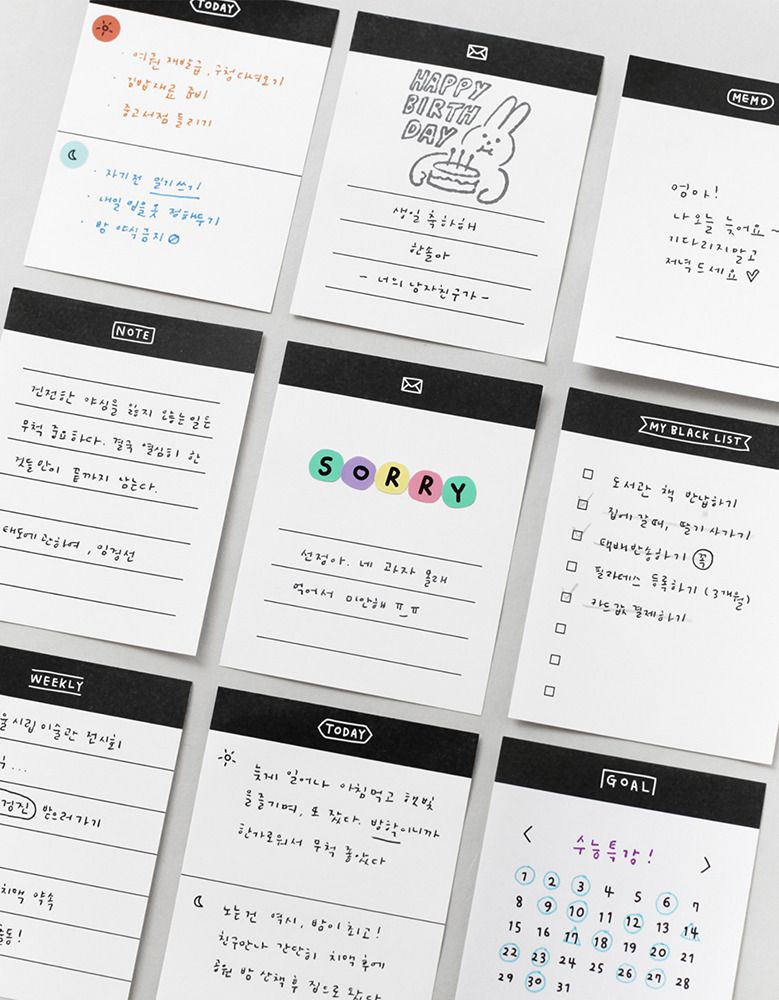 TODAY
· 여권 재발급, 구청 다녀오기
· 김밥재료 준비
· 중고서점 들리기
· 자기전 일기쓰기
· 내일 입을 옷 정해두기
· 밤 야식금지
HAPPY
BIRTH
DAY
생일 축하해
한솔아
- 너의 남자친구가 -
MEMO
영아!
나 오늘 늦어요 ~
기다리지말고
저녁드세요 ♡
NOTE
건전한 야심을 잃지 않는 일은
무척 중요하다. 결국 열심히 한
것들만이 끝까지 남는다.
태도에 관하여, 임경선
SORRY
선정아. 네 과자 몰래
먹어서 미안해 ㅠㅠ
MY BLACK LIST
도서관 책 반납하기
집에 갈때, 딸기 사가기
택배발송하기 꼭
필라테스 등록하기 (3개월)
카드값 결제하기
WEEKLY
울시립 미술관 전시회
...
경진 받으러가기
치맥 약소
!
TODAY
늦게 일어나 아침먹고 햇빛
을즐기며, 또 잤다. 방학이니까
한가로워서 무척 좋았다
노는건 역시, 밤이 최고!
친구만나 간단히 치맥 후에
공원 밤 산책 후 집으로 왔다
GOAL
< 수능특강! >
1 2 3 4 5 6 7
8 9 10 11 12 13 14
15 16 17 18 19 20 21
22 23 24 25 26 27 28
29 30 31